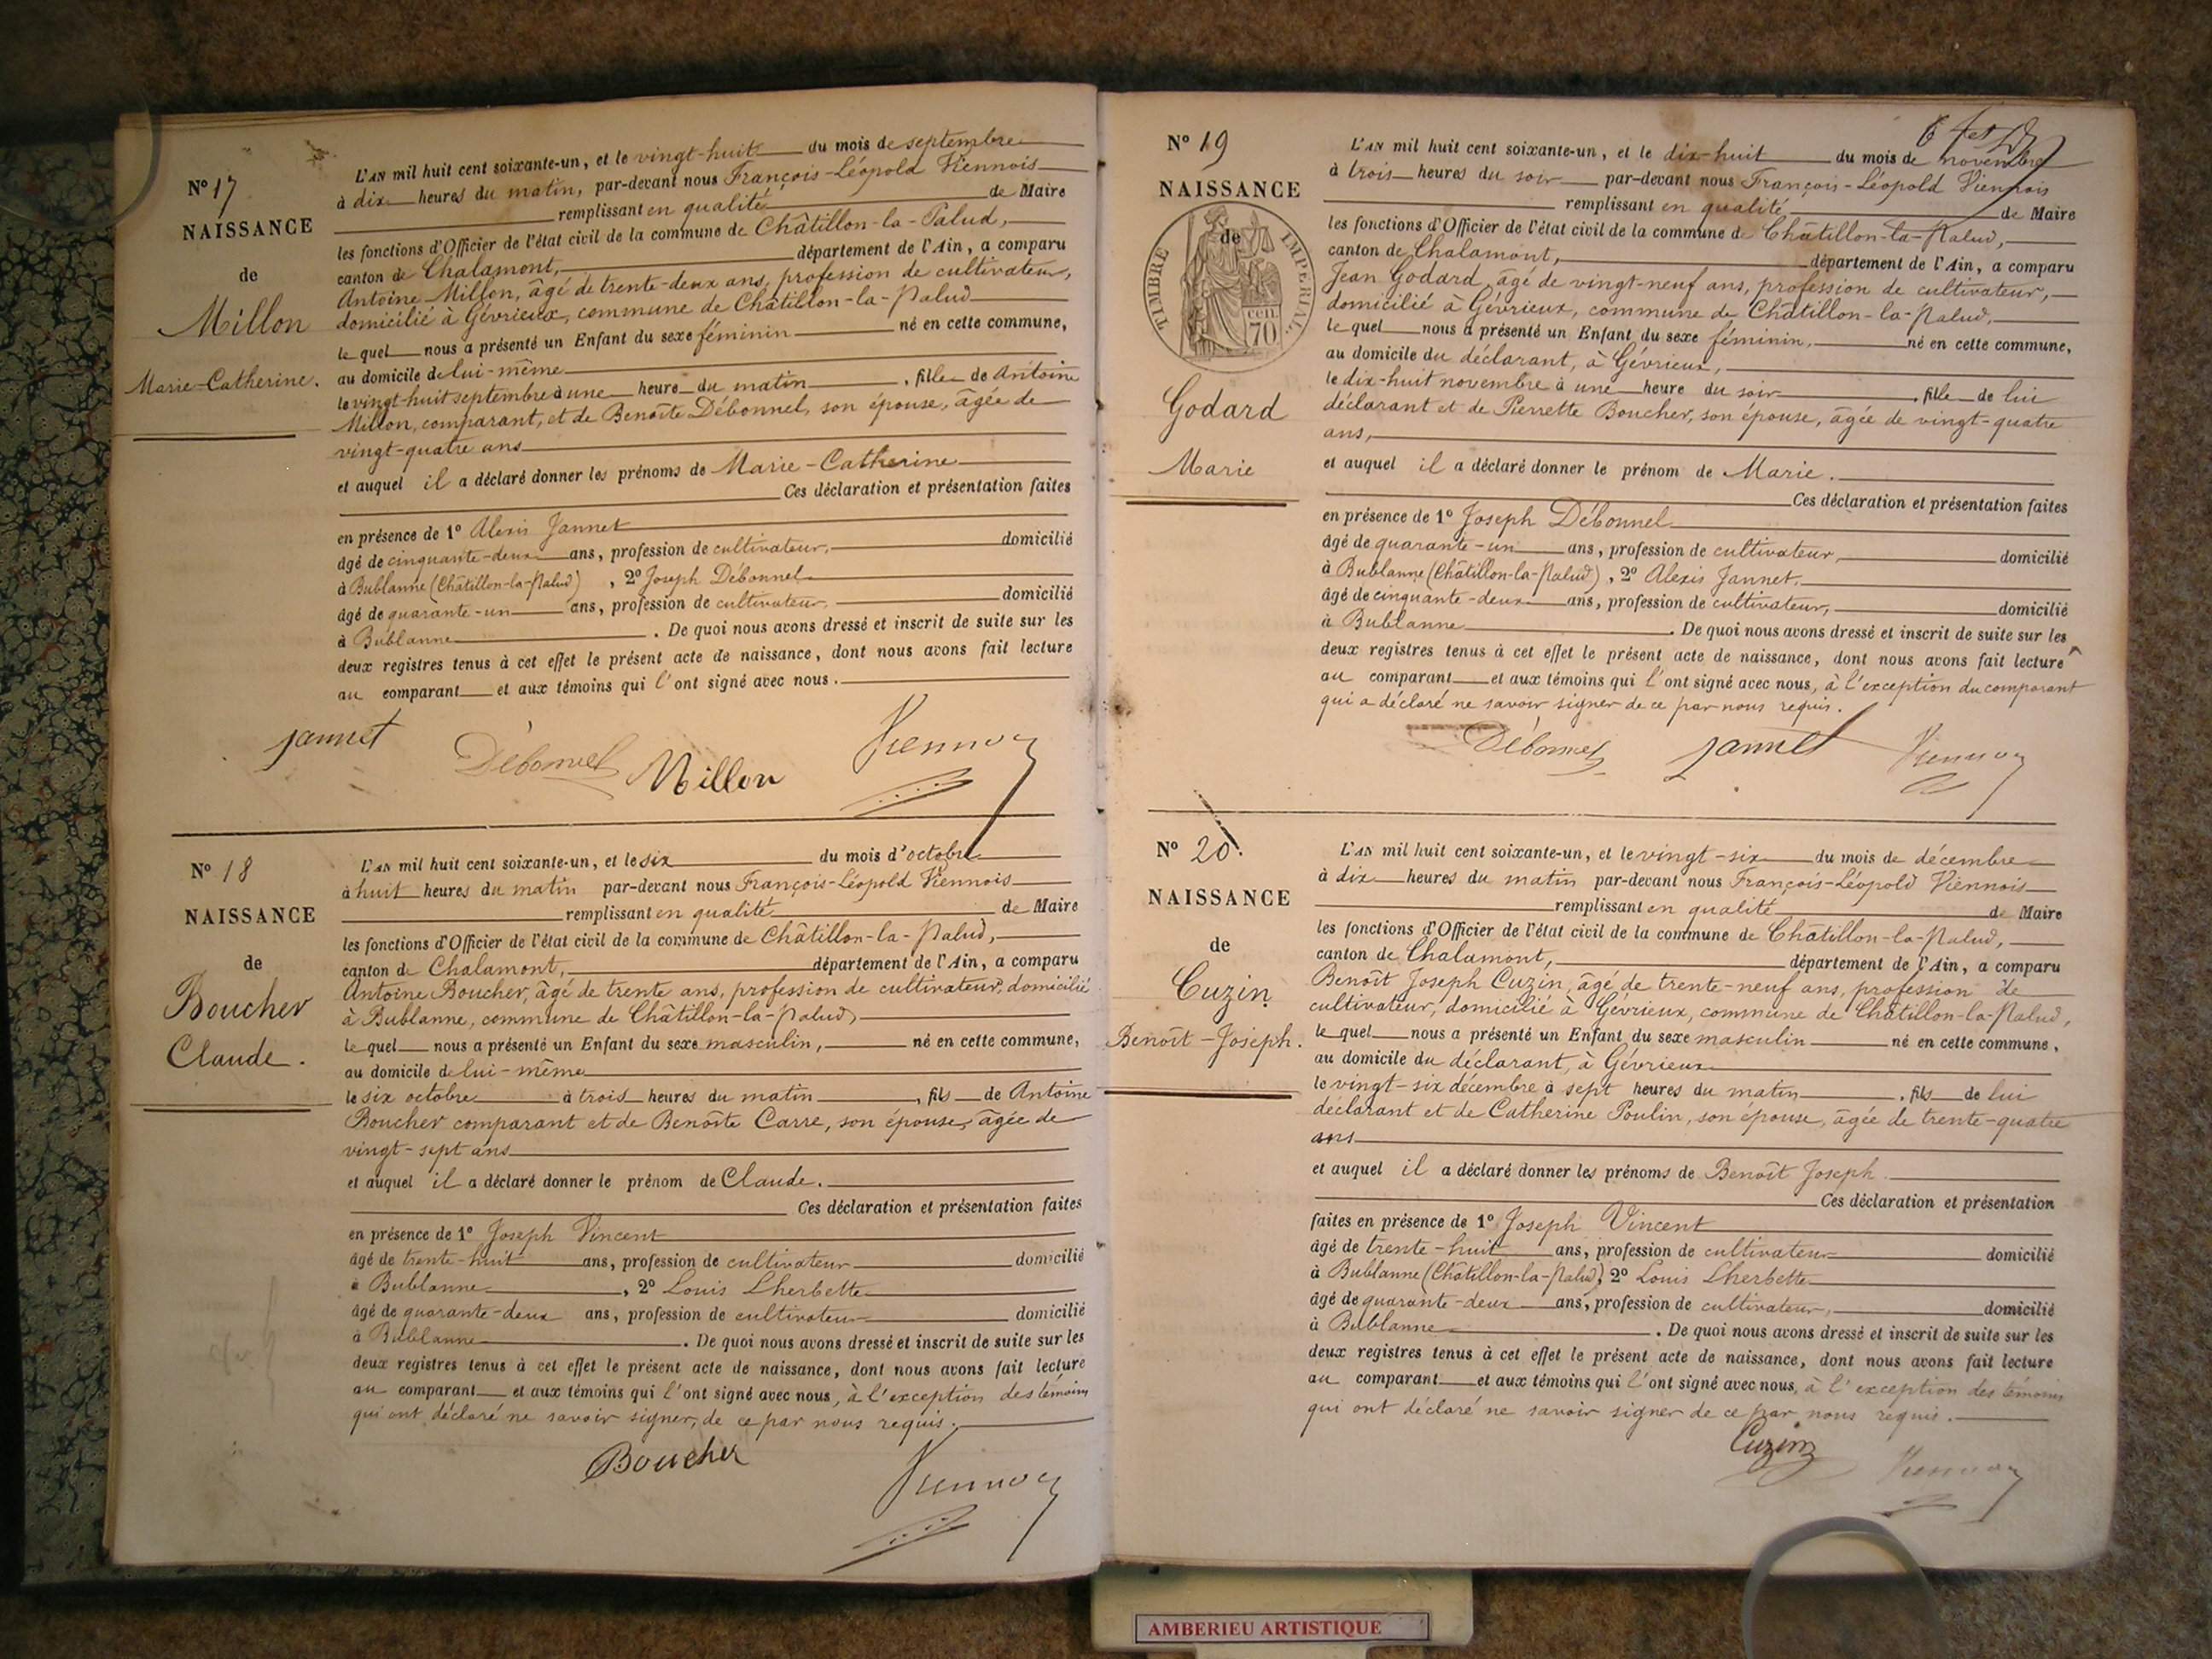 Nº 17
NAISSANCE
de
Millon
Marie-Catherine.
L'AN mil huit cent soixante-un, et le vingt-huit du mois de septembre
à dix heures du matin, par-devant nous François-Léopold Viennois
remplissant en qualité de Maire
les fonctions d'Officier de l'état civil de la commune de Châtillon-la-Palud,
canton de Chalamont, département de l'Ain, a comparu
Antoine Millon, âgé de trente-deux ans, profession de cultivateur,
domicilié à Gévrieux, commune de Châtillon-la-Palud
le quel nous a présenté un Enfant du sexe féminin né en cette commune,
au domicile de lui-même
le vingt-huit septembre à une heure du matin, fille de Antoine
Millon, comparant, et de Benoîte Débonnel, son épouse, âgée de
vingt-quatre ans
et auquel il a déclaré donner les prénoms de Marie-Catherine
Ces déclaration et présentation faites
en présence de 1º Alexis Jannet
âgé de cinquante-deux ans, profession de cultivateur, domicilié
à Bublanne (Châtillon-la-Palud), 2º Joseph Débonnel
âgé de quarante-un ans, profession de cultivateur, domicilié
à Bublanne. De quoi nous avons dressé et inscrit de suite sur les
deux registres tenus à cet effet le présent acte de naissance, dont nous avons fait lecture
au comparant et aux témoins qui l'ont signé avec nous.
Jannet Débonnel Millon Viennois
Nº 18
NAISSANCE
de
Boucher
Claude.
L'AN mil huit cent soixante-un, et le six du mois d'octobre
à huit heures du matin par-devant nous François-Léopold Viennois
remplissant en qualité de Maire
les fonctions d'Officier de l'état civil de la commune de Châtillon-la-Palud,
canton de Chalamont, département de l'Ain, a comparu
Antoine Boucher, âgé de trente ans, profession de cultivateur, domicilié
à Bublanne, commune de Châtillon-la-Palud,
le quel nous a présenté un Enfant du sexe masculin, né en cette commune,
au domicile de lui-même
le six octobre à trois heures du matin, fils de Antoine
Boucher comparant et de Benoîte Carre, son épouse, âgée de
vingt-sept ans
et auquel il a déclaré donner le prénom de Claude.
Ces déclaration et présentation faites
en présence de 1º Joseph Vincent
âgé de trente-huit ans, profession de cultivateur domicilié
à Bublanne, 2º Louis Lherbette
âgé de quarante-deux ans, profession de cultivateur domicilié
à Bublanne. De quoi nous avons dressé et inscrit de suite sur les
deux registres tenus à cet effet le présent acte de naissance, dont nous avons fait lecture
au comparant et aux témoins qui l'ont signé avec nous, à l'exception des témoins
qui ont déclaré ne savoir signer, de ce par nous requis.
Boucher Viennois
Nº 19
NAISSANCE
de
TIMBRE IMPERIAL
70
Godard
Marie
L'AN mil huit cent soixante-un, et le dix-huit du mois de novembre
à trois heures du soir par-devant nous François-Léopold Viennois
remplissant en qualité de Maire
les fonctions d'Officier de l'état civil de la commune de Châtillon-la-Palud,
canton de Chalamont, département de l'Ain, a comparu
Jean Godard, âgé de vingt-neuf ans, profession de cultivateur,
domicilié à Gévrieux, commune de Châtillon-la-Palud,
le quel nous a présenté un Enfant du sexe féminin, né en cette commune,
au domicile du déclarant, à Gévrieux,
le dix-huit novembre à une heure du soir, fille de lui
déclarant et de Pierrette Boucher, son épouse, âgée de vingt-quatre
ans,
et auquel il a déclaré donner le prénom de Marie.
Ces déclaration et présentation faites
en présence de 1º Joseph Débonnel
âgé de quarante-un ans, profession de cultivateur, domicilié
à Bublanne (Châtillon-la-Palud), 2º Alexis Jannet,
âgé de cinquante-deux ans, profession de cultivateur, domicilié
à Bublanne. De quoi nous avons dressé et inscrit de suite sur les
deux registres tenus à cet effet le présent acte de naissance, dont nous avons fait lecture
au comparant et aux témoins qui l'ont signé avec nous, à l'exception du comparant
qui a déclaré ne savoir signer de ce par nous requis.
Débonnel Jannet Viennois
Nº 20.
NAISSANCE
de
Cuzin
Benoît-Joseph.
L'AN mil huit cent soixante-un, et le vingt-six du mois de décembre
à dix heures du matin par-devant nous François-Léopold Viennois
remplissant en qualité de Maire
les fonctions d'Officier de l'état civil de la commune de Châtillon-la-Palud,
canton de Chalamont, département de l'Ain, a comparu
Benoît Joseph Cuzin, âgé de trente-neuf ans, profession de
cultivateur, domicilié à Gévrieux, commune de Châtillon-la-Palud,
le quel nous a présenté un Enfant du sexe masculin né en cette commune,
au domicile du déclarant, à Gévrieux
le vingt-six décembre à sept heures du matin, fils de lui
déclarant et de Catherine Poulin, son épouse, âgée de trente-quatre
ans
et auquel il a déclaré donner les prénoms de Benoît Joseph
Ces déclaration et présentation
faites en présence de 1º Joseph Vincent
âgé de trente-huit ans, profession de cultivateur domicilié
à Bublanne (Châtillon-la-Palud), 2º Louis Lherbette
âgé de quarante-deux ans, profession de cultivateur, domicilié
à Bublanne. De quoi nous avons dressé et inscrit de suite sur les
deux registres tenus à cet effet le présent acte de naissance, dont nous avons fait lecture
au comparant et aux témoins qui l'ont signé avec nous, à l'exception des témoins
qui ont déclaré ne savoir signer de ce par nous requis.
Cuzin Viennois
AMBERIEU ARTISTIQUE